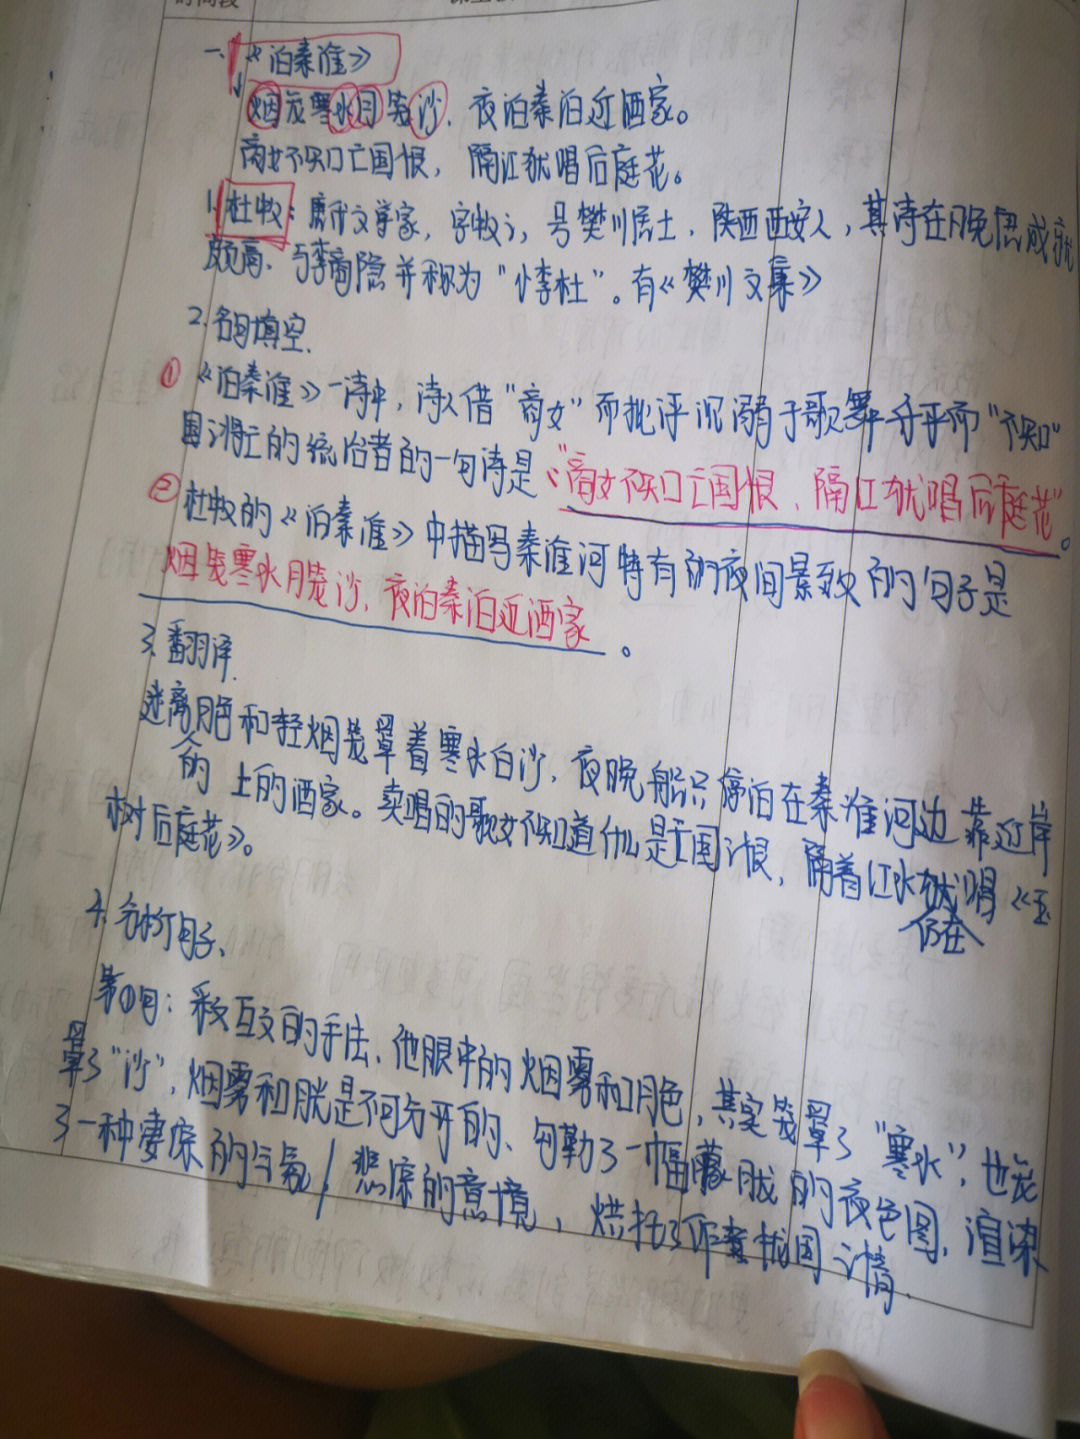 时间段
一、《泊秦淮》
烟笼寒水月笼沙，夜泊秦泊近酒家。
商女不知亡国恨，隔江犹唱后庭花。
1. 杜牧：唐代文学家，字牧之，号樊川居士，陕西西安人，其诗在晚唐成就
颇高，与李商隐并称为“小李杜”。有《樊川文集》
2. 名句填空.
① 《泊秦淮》一诗中，诗人借“商女”而批评沉溺于歌舞升平而“不知”
国之将亡的统治者的一句诗是“商女不知亡国恨，隔江犹唱后庭花”。
② 杜牧的《泊秦淮》中描写秦淮河特有的夜间景致的句子是
烟笼寒水月笼沙，夜泊秦泊近酒家。
3. 翻译.
迷离月色和轻烟笼罩着寒水白沙，夜晚船只停泊在秦淮河边靠近岸
的 上的酒家。卖唱的歌女不知道什么是亡国之恨，隔着江水犹唱《玉
仍在
树后庭花》。
4. 分析句子、
第①句：采互文的手法，他眼中的烟雾和月色，其实笼罩了“寒水”，也笼
罩了“沙”，烟雾和月光是不可分开的、勾勒了一幅朦胧的夜色图，渲染
了一种凄凉的气氛/悲凉的意境，烘托了作者忧国之情